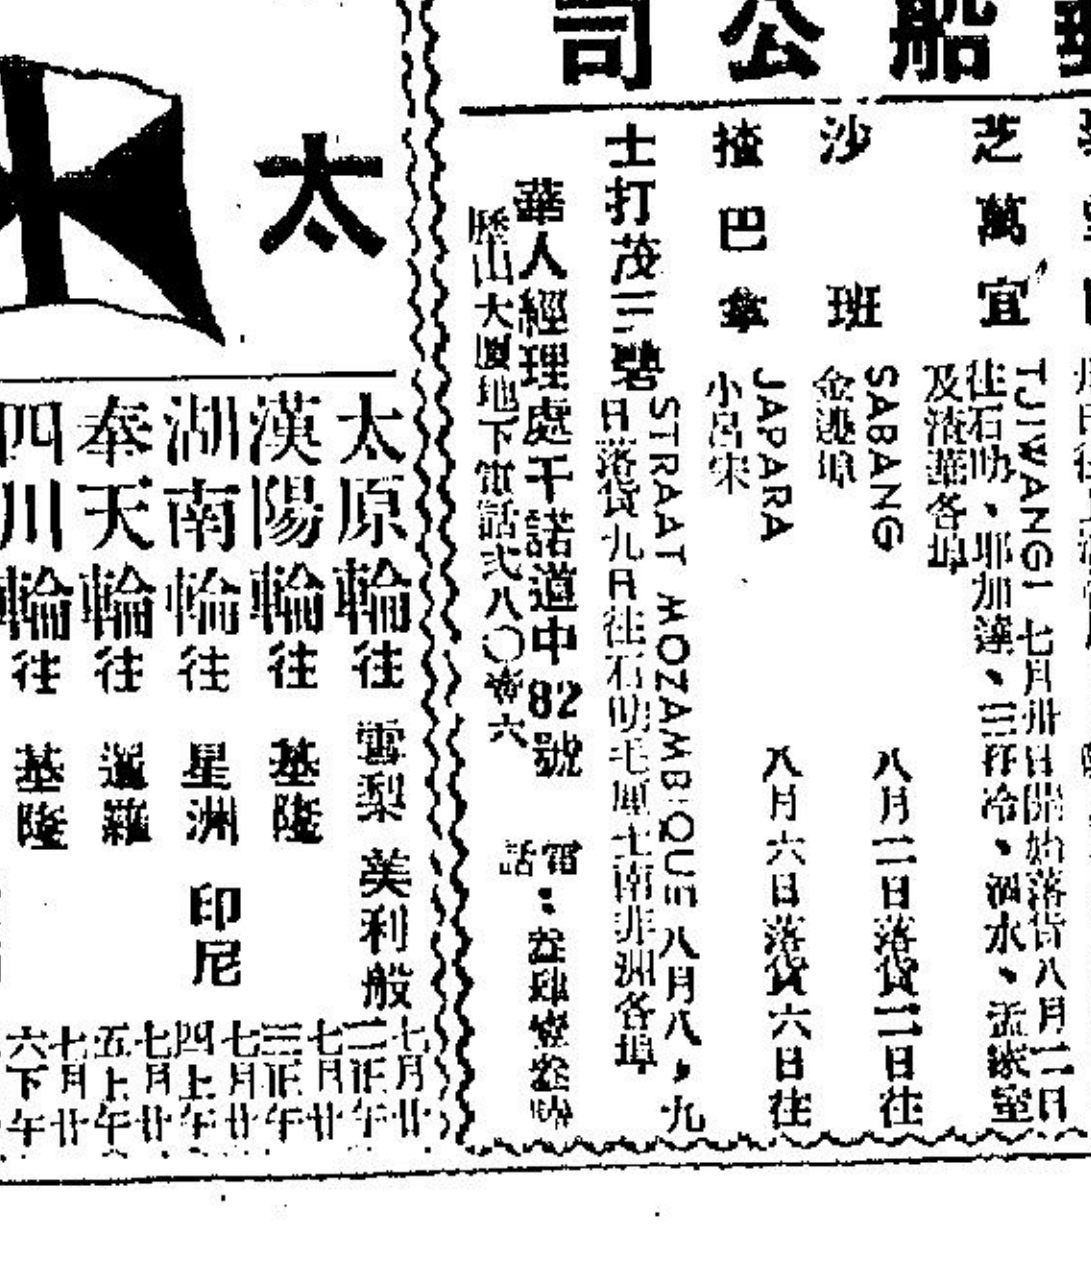 船公司
芝萬宜
TJIWANGI 七月卅日開始落貨八月二日
往石叻、耶加達、三孖冷、泗水、孟家室
及渣華各埠
沙班
SABANG 八月二日落貨二日往
金邊埠
揸巴拿
JAPARA 八月六日落貨六日往
小呂宋
士打茂三鼙
STRAAT MOZAMBIQUE 八月八,九
日落貨九日往石叻毛厘士南非洲各埠
華人經理處干諾道中82號 電話:叁肆壹叁
歷山大廈地下電話弍八〇 六
太
太原輪往 雲梨 美利般 七月廿二正午
漢陽輪往 基隆 七月廿三正午
湖南輪往 星洲 印尼 七月廿四上午
奉天輪往 暹羅 七月廿五上午
四川輪往 基隆 七月廿六下午